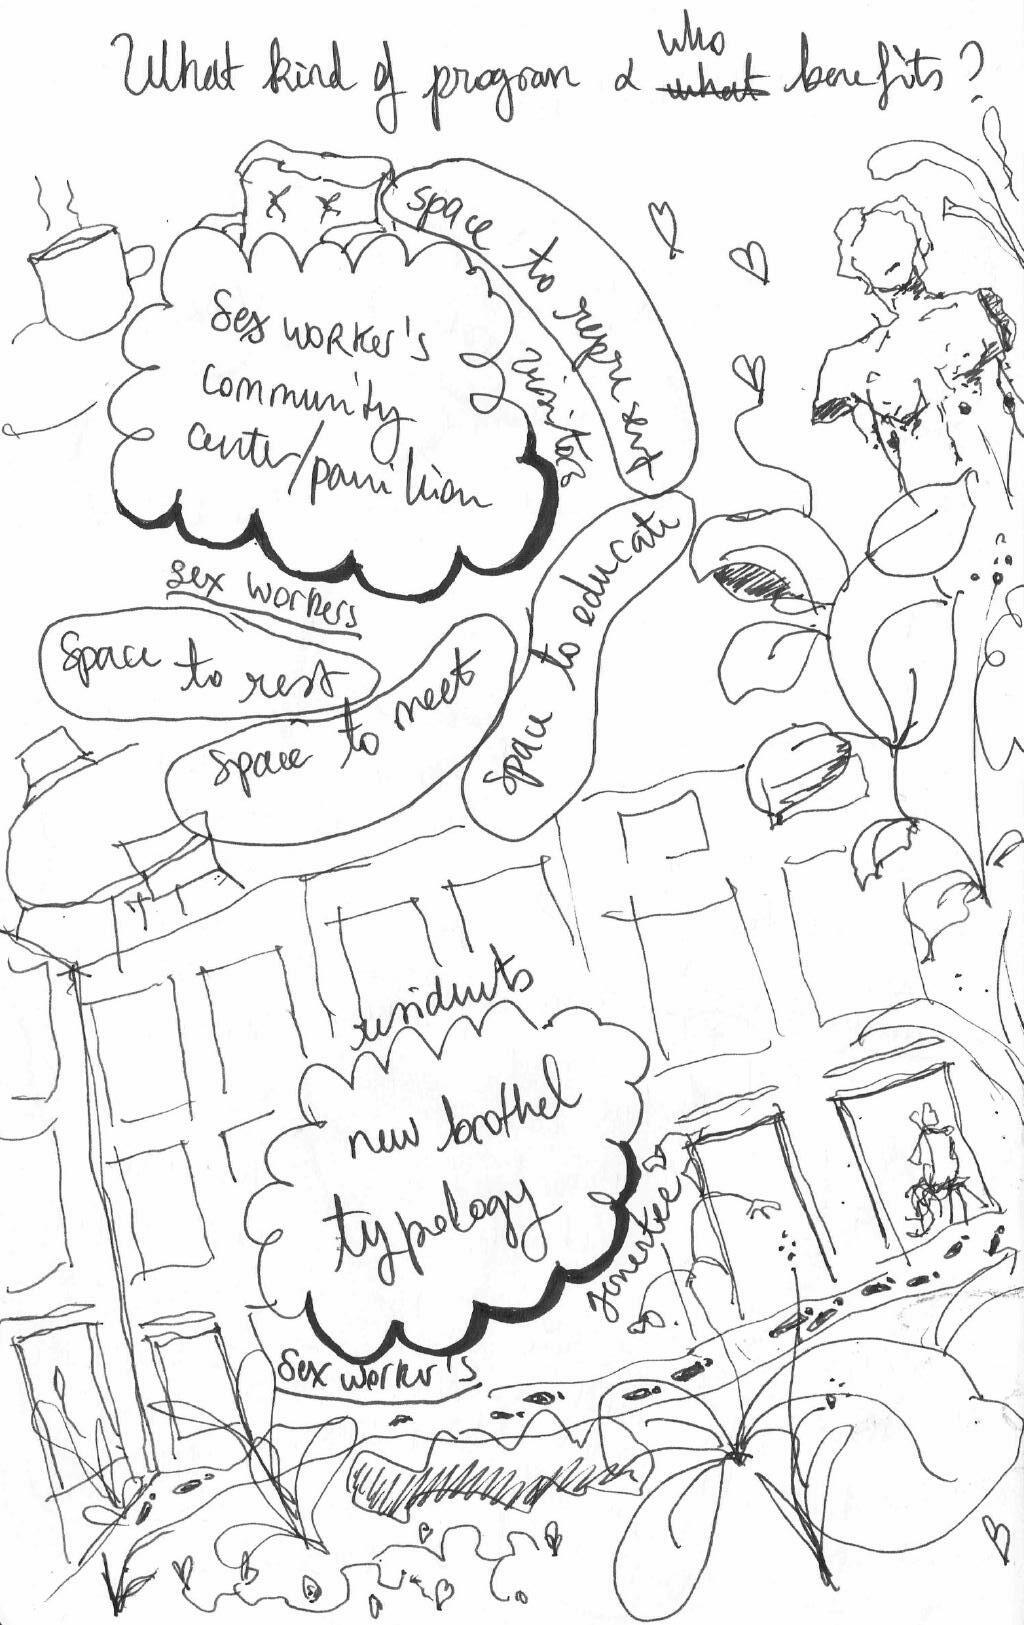 What kind of program & who what benefits?
space to represent
Sex worker's
community
center/pavillion
visitors
sex workers
space to rest
space to meet
space to educate
residents
new brothel
typology
Sex worker's